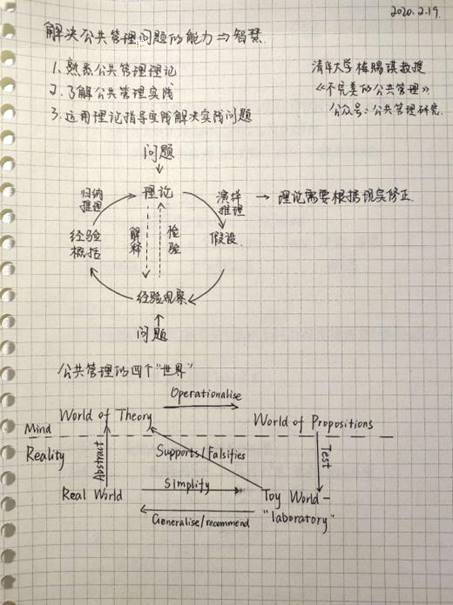 2020.2.19.
解决公共管理问题的能力⇒智慧
1.熟悉公共管理理论
2.了解公共管理实践
3.运用理论指导实践解决实践问题
清华大学梅赐琪教授
《不完美的公共管理》
公众号:公共管理研究.
问题
理论
归纳推理
演绎推理
→ 理论需要根据现实修正
经验概括
解释
检验
假设
经验观察
问题
公共管理的四个"世界"
Operationalise
World of Theory
World of Propositions
Mind
Reality
Abstract
Supports/Falsifies
Test
Real World
Simplify
Toy World-
"laboratory"
Generalise/recommend